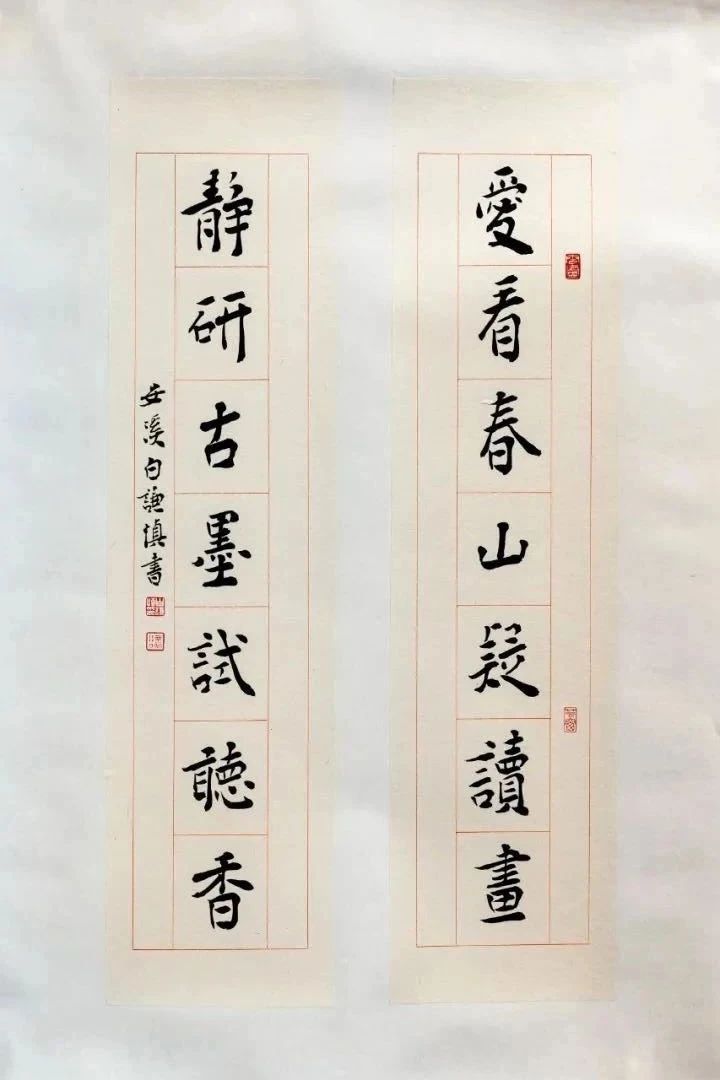 愛看春山疑讀畫
靜研古墨試聽香
安溪白謙慎書